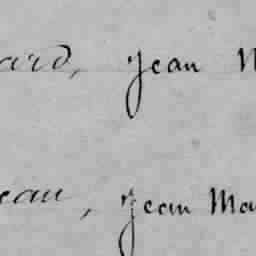 ard, Jean M
eau, Jean Ma